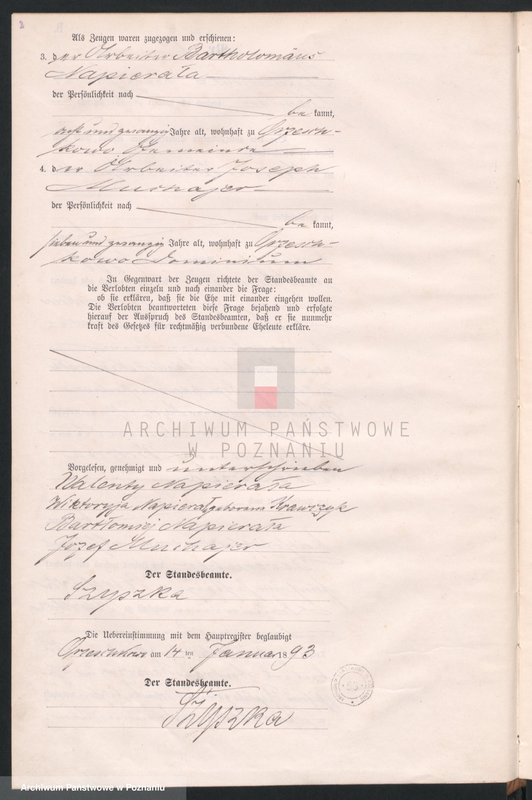 2
Als Zeugen waren zugezogen und erschienen:
3. der Arbeiter Bartholomäus
Napierała
der Persönlichkeit nach
be kannt,
acht und zwanzig Jahre alt, wohnhaft zu
kowo Gemeinde
4. der Arbeiter Joseph
Muchajer
der Persönlichkeit nach
be kannt,
sieben und zwanzig Jahre alt, wohnhaft zu
kowo Dominium
In Gegenwart der Zeugen richtete der Standesbeamte an
die Verlobten einzeln und nach einander die Frage:
ob sie erklären, daß sie die Ehe mit einander eingehen wollen.
Die Verlobten beantworteten diese Frage bejahend und erfolgte
hierauf der Ausspruch des Standesbeamten, daß er sie nunmehr
kraft des Gesetzes für rechtmäßig verbundene Eheleute erkläre.
ARCHIWUM PAŃSTWOWE
W POZNANIU
Vorgelesen, genehmigt und unterschrieben
Walenty Napierała
Wiktoryja Napierała geborene Krawczyk
Bartłomiej Napierała
Józef Muchajer
Der Standesbeamte.
Szyszka
Die Uebereinstimmung mit dem Hauptregister beglaubigt
am 14 ten Januar 1893
Der Standesbeamte.
Szyszka
Archiwum Państwowe w Poznaniu